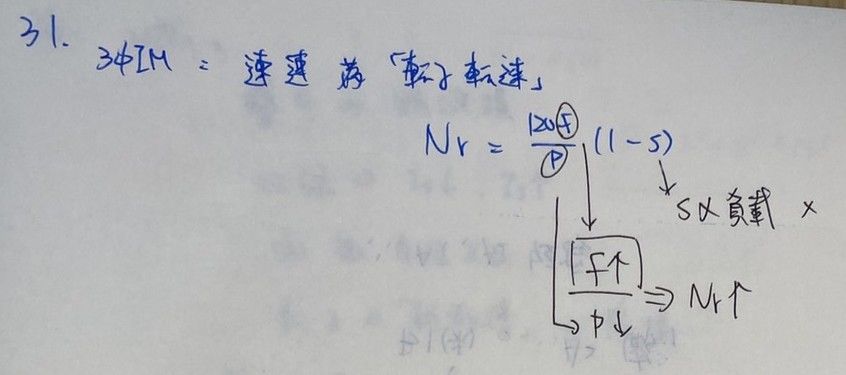 31.
3φIM : 速運為「転子転速」
Nr = 120f/P (1-s)
s∝負載 ×
f↑/p↓ ⇒ Nr↑